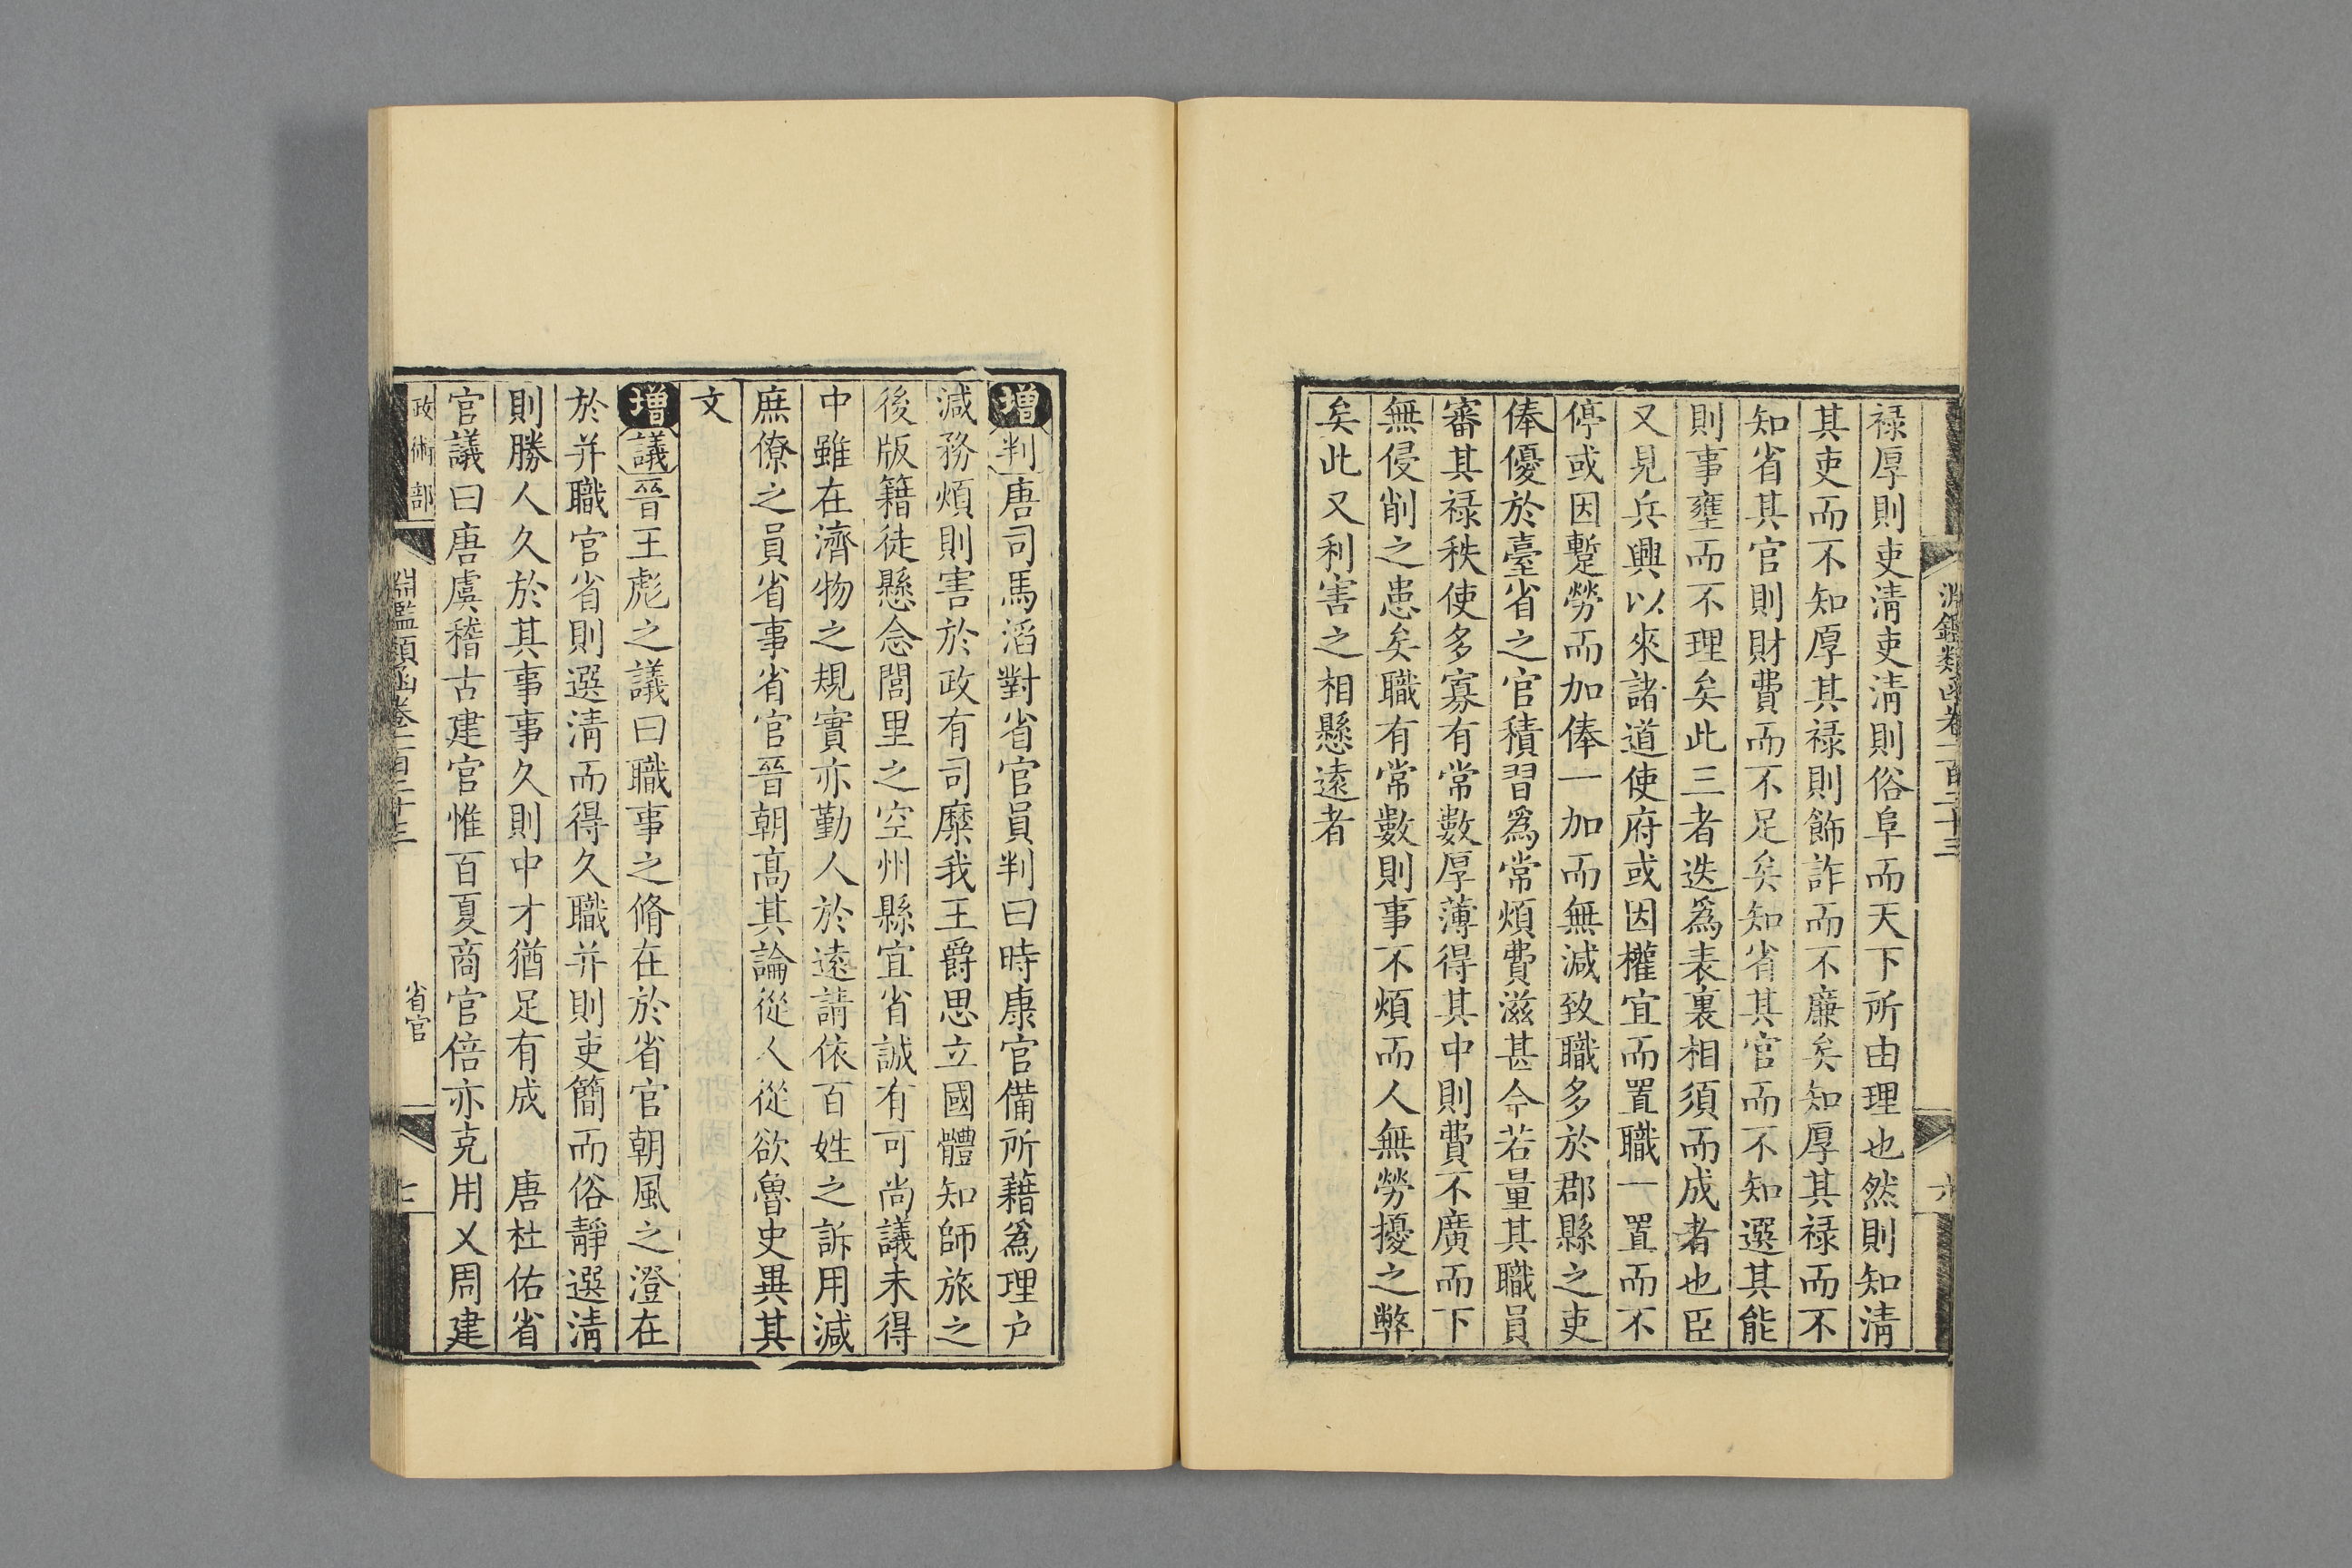 淵鑑類函卷一百二十三
六
禄厚則吏淸吏淸則俗阜而天下所由理也然則知淸
其吏而不知厚其禄則飾詐而不廉矣知厚其禄而不
知省其官則財費而不足矣知省其官而不知選其能
則事壅而不理矣此三者迭爲表裏相須而成者也臣
又見兵興以來諸道使府或因權宜而置職一置而不
停或因蹔勞而加俸一加而無減致職多於郡縣之吏
俸優於臺省之官積習爲常煩費滋甚今若量其職員
審其禄秩使多寡有常數厚薄得其中則費不廣而下
無侵削之患矣職有常數則事不煩而人無勞擾之弊
矣此又利害之相懸遠者
增判唐司馬滔對省官員判曰時康官備所藉爲理户
減務煩則害於政有司糜我王爵思立國體知師旅之
後版籍徒懸念閭里之空州縣宜省誠有可尚議未得
中雖在濟物之規實亦勤人於遠請依百姓之訴用減
庶僚之員省事省官晉朝高其論從人從欲魯史異其
文
增議晉王彪之議曰職事之脩在於省官朝風之澄在
於并職官省則選淸而得久職并則吏簡而俗靜選淸
則勝人久於其事事久則中才猶足有成　唐杜佑省
官議曰唐虞稽古建官惟百夏商官倍亦克用乂周建
政術部
淵鑑類函卷一百二十三
省官
七